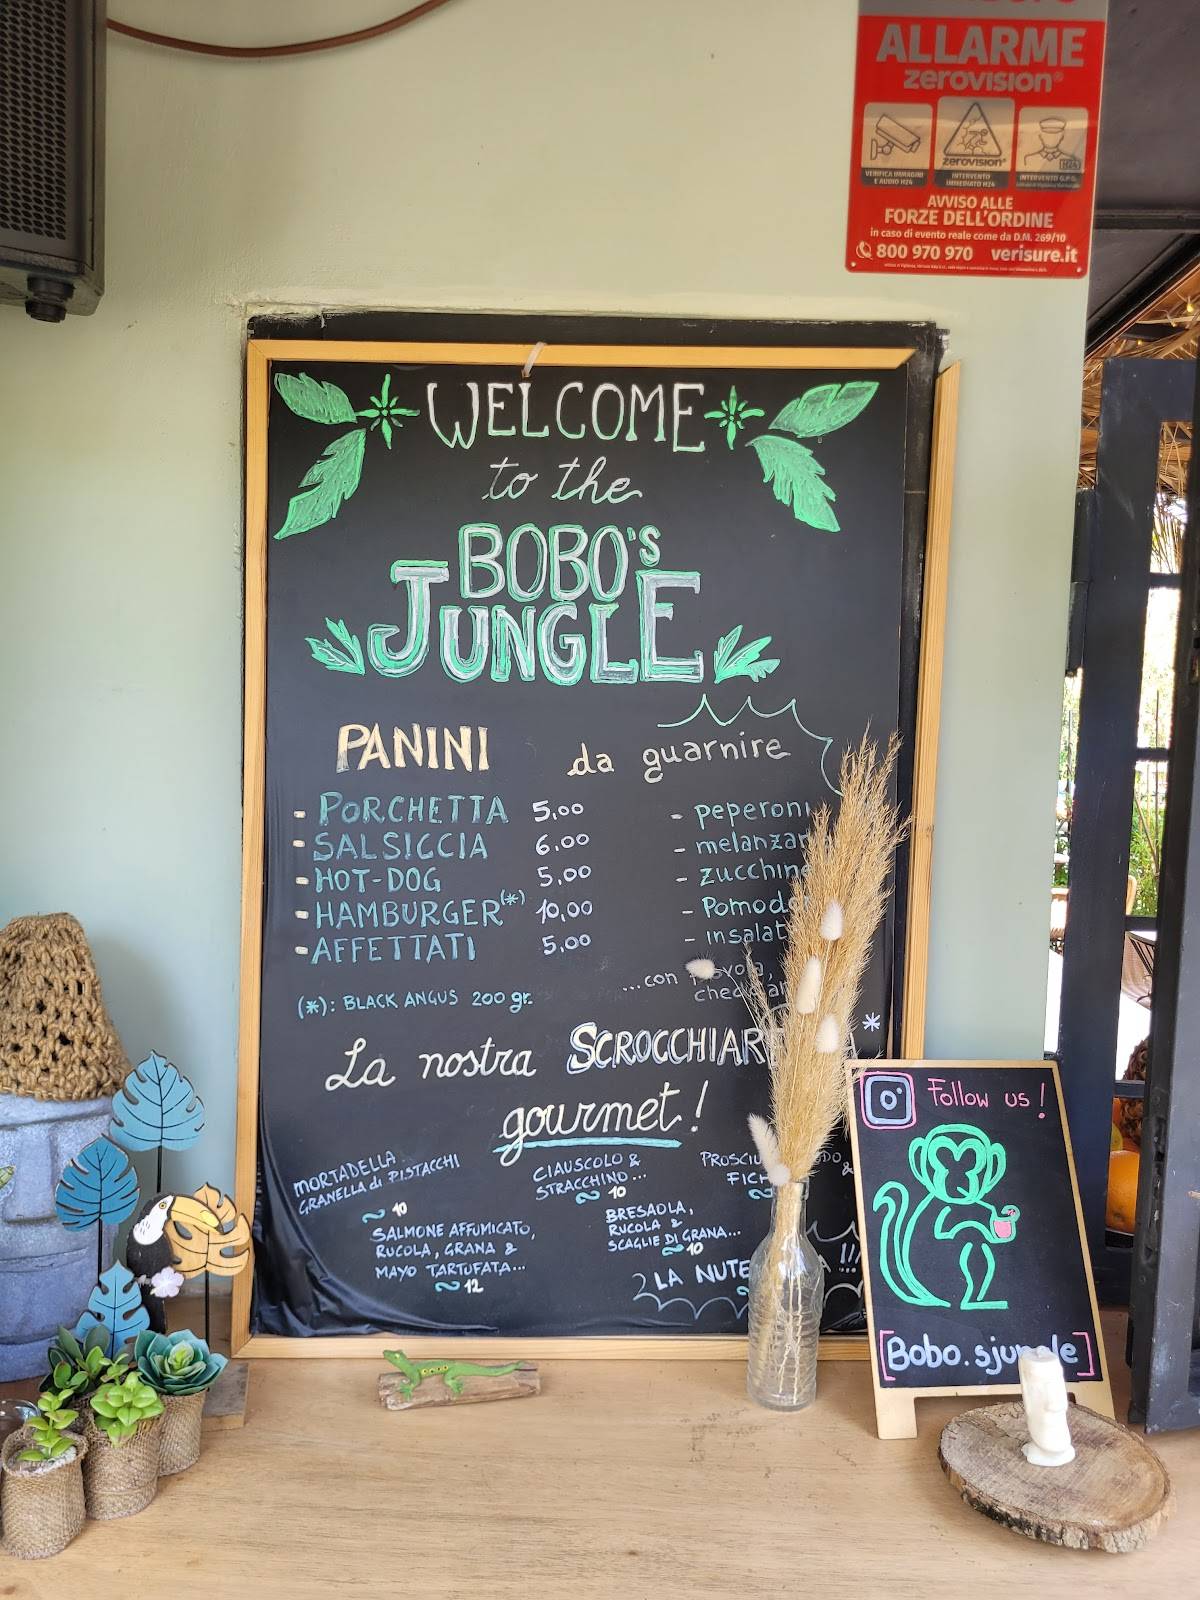 ALLARME
zerovision®
zerovision®
VERIFICA IMMAGINI
E AUDIO H24
INTERVENTO
IMMEDIATO H24
H24
INTERVENTO G.P.G.
AVVISO ALLE
FORZE DELL'ORDINE
in caso di evento reale come da D.M. 269/10
800 970 970 verisure.it
WELCOME
to the
BOBO's
JUNGLE
PANINI
- PORCHETTA 5,00
- SALSICCIA 6,00
- HOT-DOG 5,00
- HAMBURGER(*) 10,00
- AFFETTATI 5,00
(*): BLACK ANGUS 200 gr.
da guarnire
- peperoni
- melanzan
- zucchine
- Pomodo
- insalat
...con
La nostra SCROCCHIAR A *
gourmet!
MORTADELLA
GRANELLA di PISTACCHI
~ 10
CIAUSCOLO &
STRACCHINO...
~ 10
PROSCIU DO &
FICH
SALMONE AFFUMICATO,
RUCOLA, GRANA &
MAYO TARTUFATA...
~ 12
BRESAOLA,
RUCOLA &
SCAGLIE DI GRANA...
~ 10
LA NUTE A !!!
Follow us!
[Bobo.sjungle]